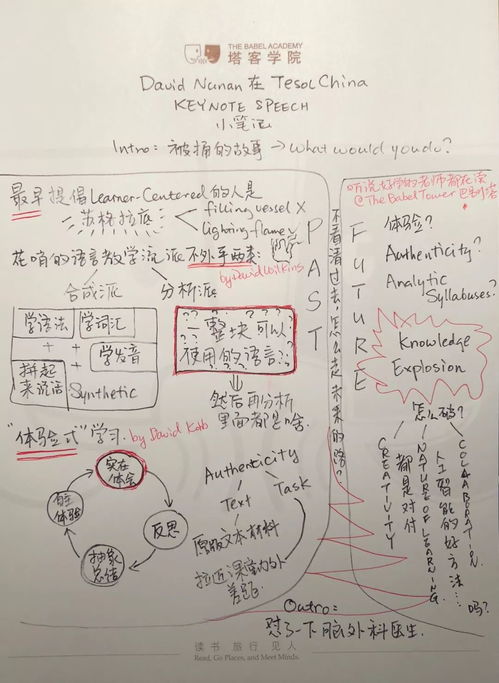 THE BABEL ACADEMY
塔客学院
David Nunan 在 Tesol China
KEYNOTE SPEECH
小笔记
Intro: 被捅的故事 → What would you do?
最早提倡Learner-Centered的人是
苏格拉底
filling vessel X
lighting flame √
花哨的语言教学流派不外乎两类:
by David Wilkins
合成派
分析派
学语法
学词汇
+ +
学发音
拼起来说话
Synthetic
一整块可以
使用的语言
然后再分析
里面都是啥.
"体验式"学习. by David Kolb
实在体会
反思
抽象总结
自主体验
Authenticity
Text
Task
原版文本材料
拉近课堂内外
差距.
PAST
不看清过去,怎么走未来的路?
FUTURE
听说好学的老师都在读
@The Babel Tower 巴别塔
体验?
Authenticity?
Analytic
Syllabuses?
Knowledge
Explosion
怎么破?
CREATIVITY
都是对付
NATURE OF LEARNING
人工智能的好方法…
COLLABORATION.
吗?
Outro:
怼了一下脑外科医生.
读书 旅行 见人
Read, Go Places, and Meet Minds.